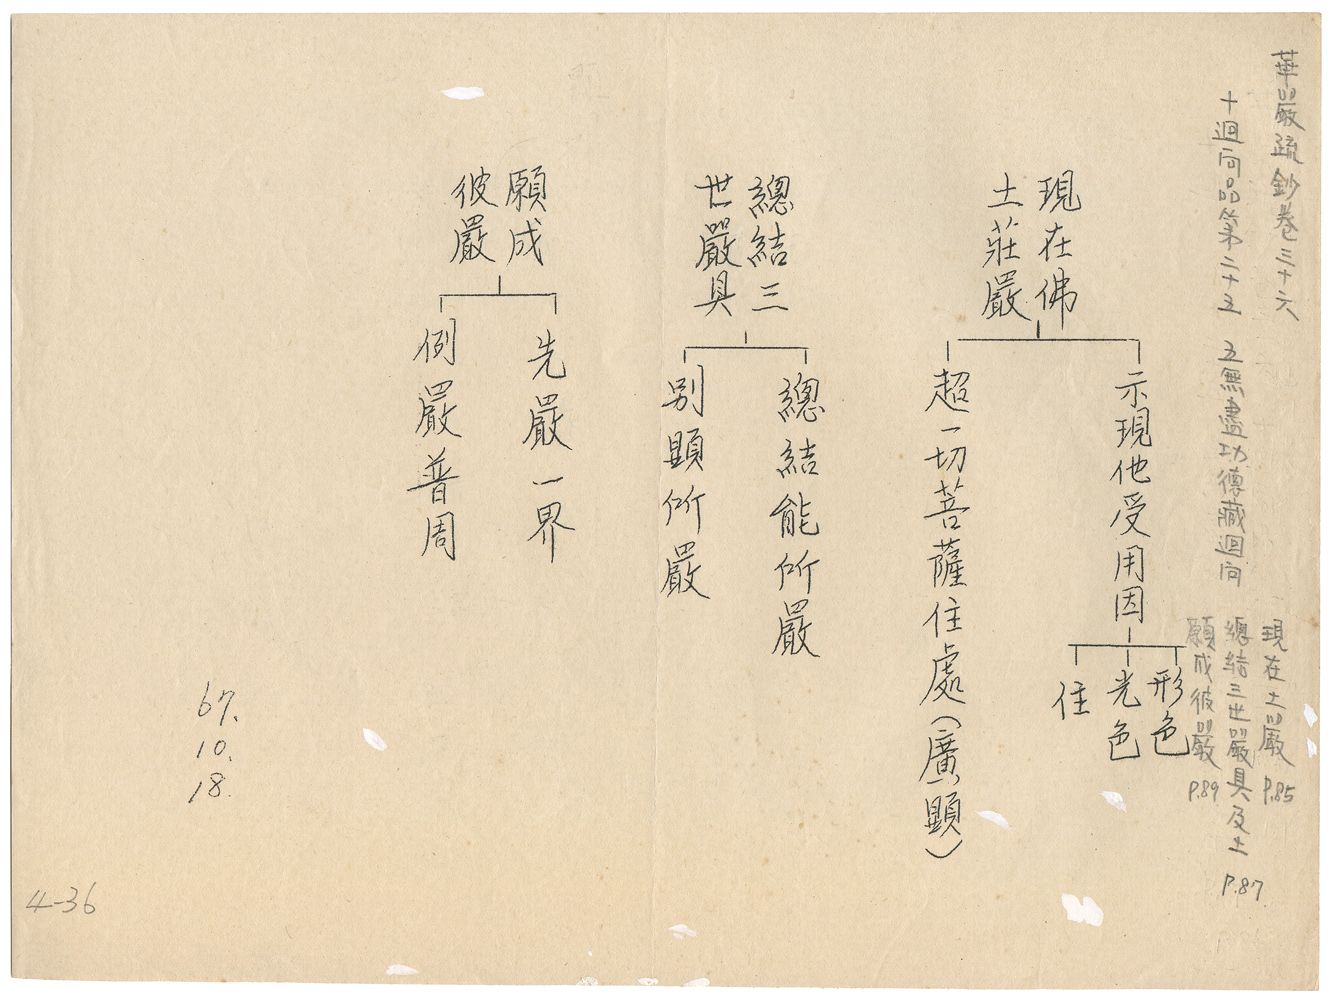 華嚴疏鈔卷三十六
十迴向品第二十五 五無盡功德藏迴向
現在土嚴 P.85
總結三世嚴具及土 P.87
願成彼嚴 P.89
現在佛
土莊嚴
示現他受用因
形色
光色
住
超一切菩薩住處(廣顯)
總結三
世嚴具
總結能所嚴
別顯所嚴
願成
彼嚴
先嚴一界
例嚴普周
67.
10.
18.
4-36